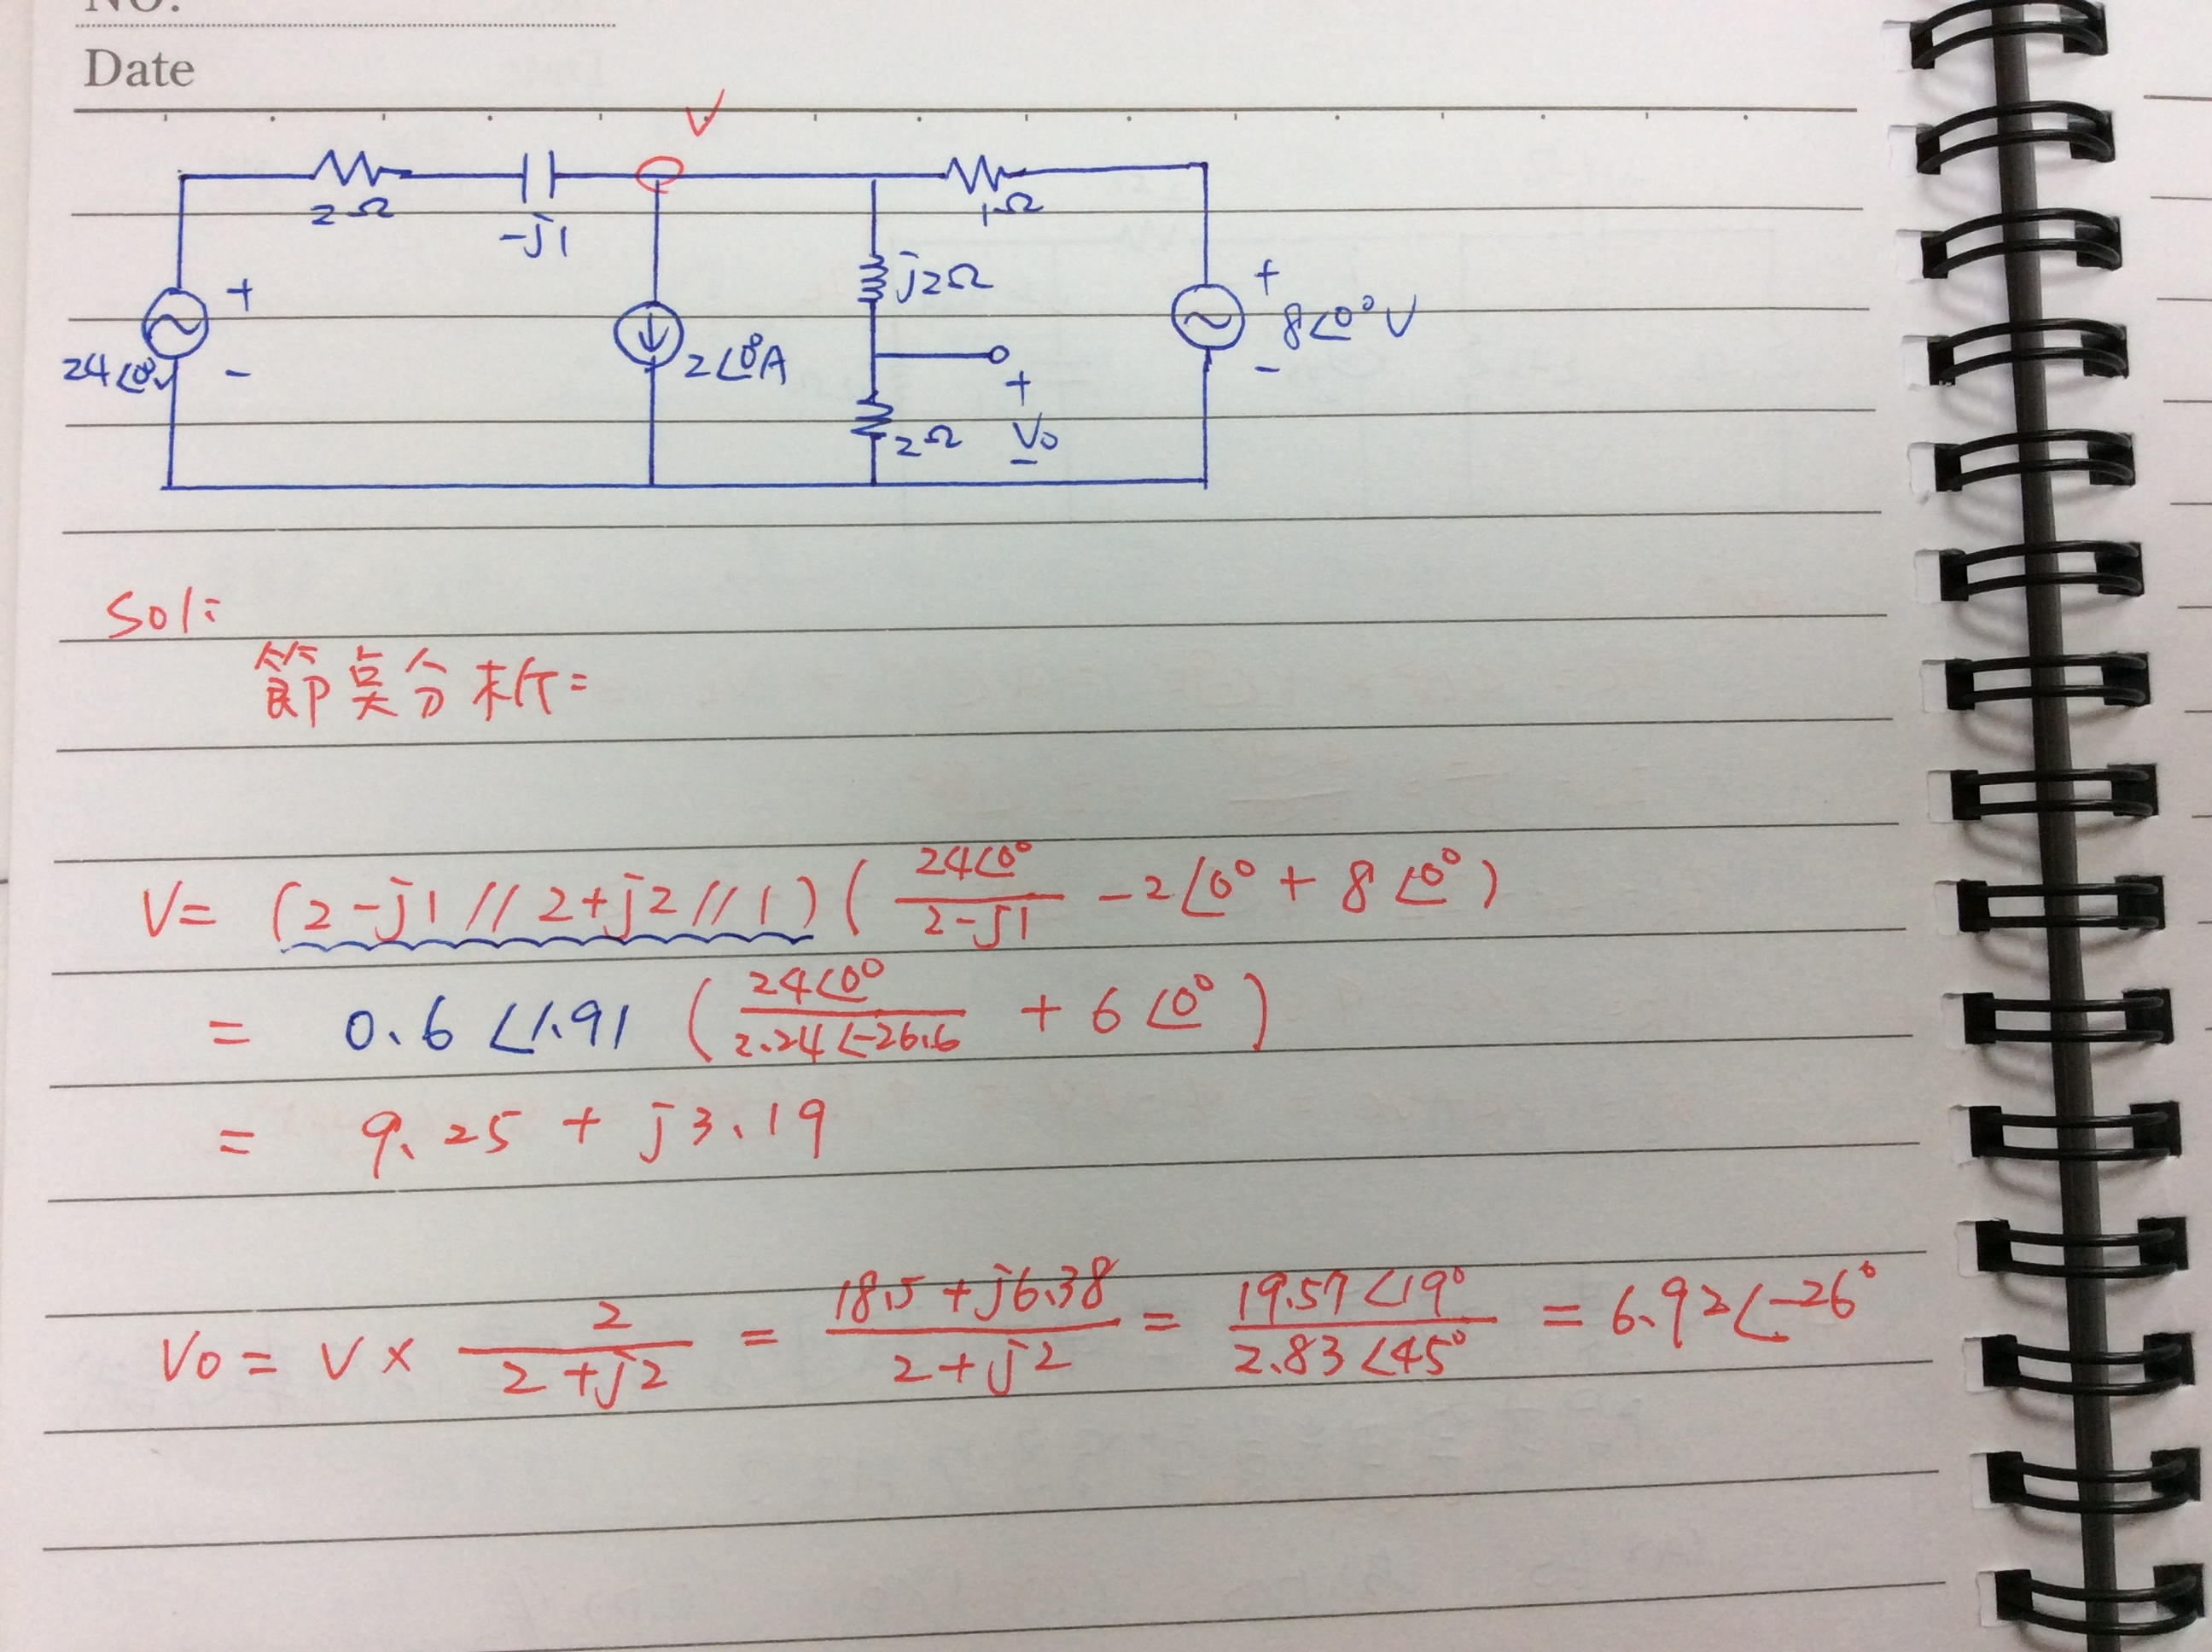 NO.
Date
V
2Ω
-j1
1Ω
+
24∠0°V
-
2∠0°A
j2Ω
+
8∠0°V
-
2Ω
+
Vo
-
Sol:
節點分析=
V= (2-j1 // 2+j2 // 1) ( 24∠0° / 2-j1 - 2∠0° + 8∠0° )
= 0.6∠1.91 ( 24∠0° / 2.24∠-26.6 + 6∠0° )
= 9.25 + j3.19
Vo = V × 2 / 2+j2 = 18.5+j6.38 / 2+j2 = 19.57∠19° / 2.83∠45° = 6.92∠-26°